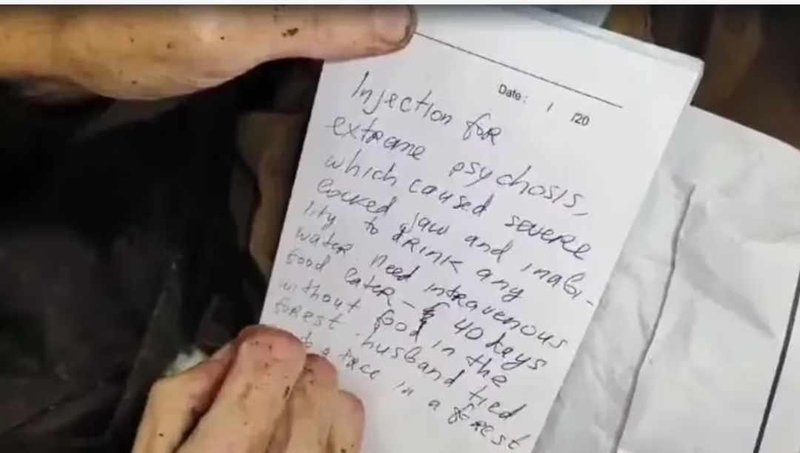 Date: / /20
Injection for
extreme psychosis,
which caused severe
locked jaw and inabi-
lity to drink any
water need intravenous
food later – 40 days
without food in the
forest. husband tied
to a tree in a forest